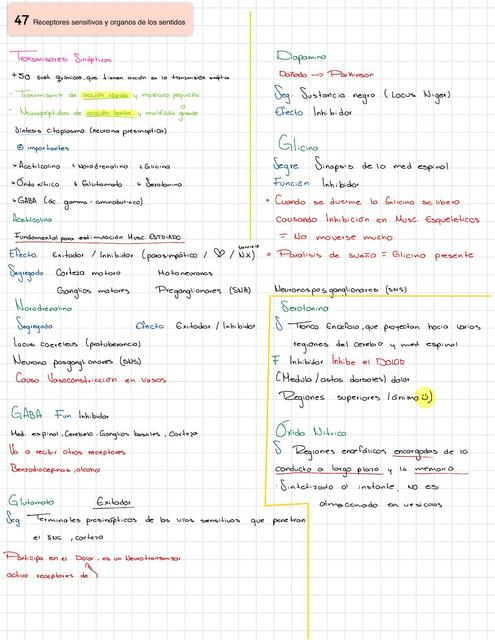 47 Receptores sensitivos y organos de los sentidos
Transmisores Sinápticos
+50 sust químicas, que tienen acción en la transmisión sináptica
- Transmisores de acción rápida y molécula pequeña
- Neuropéptidos de acción lenta y molécula grande
Síntesis citoplasma (neurona presináptica)
importantes
Acetilcolina Noradrenalina Glicina
Óxido nítrico Glutamato Serotonina
GABA (ác. gamma-aminobutírico)
Acetilcolina
Fundamental para estimulación Musc. ESTRIADO
Efecto. Exitador / Inhibidor (parasimpático / ♡ / NX)
Segregado Corteza motora Motoneuronas
Ganglios motores Preganglionares (SNA)
Noradrenalina
Segregado Efecto Exitador / Inhibidor
Locus coereleus (protuberancia)
Neurona posganglionares (SNS)
Causa Vasoconstricción en vasos
GABA Fun Inhibidor
Med. espinal, Cerebelo, Ganglios basales, corteza
Va a recibir otros receptores
Benzodiacepinas, alcohol
Glutamato Exitador
Seg. Terminales presinápticos de las vías sensitivas que penetran
el SNC, corteza
Participa en el Dolor, es un Neurotransmisor
activa receptores de
Dopamina
Dañado → Parkinson
Seg. Sustancia negra (Locus Niger)
Efecto Inhibidor
Glicina
Segre Sinapsis de la med espinal
Función Inhibidor
• Cuando se duerme la Glicina se libera
causando Inhibición en Musc Esqueléticos
= No moverse mucho
• Parálisis de sueño = Glicina presente
Neuronas posganglionares (SNS)
Serotonina
S Tronco Encéfalo, que proyectan hacia varias
regiones del cerebro y med espinal
F Inhibidor Inhibe el DOLOR
(Médula / astas dorsales) dolor
Regiones superiores (ánimo)
Óxido Nítrico
S Regiones encefálicas encargadas de la
conducta a largo plazo y la memoria
- Sintetizado al instante, NO es
almacenado en vesículas